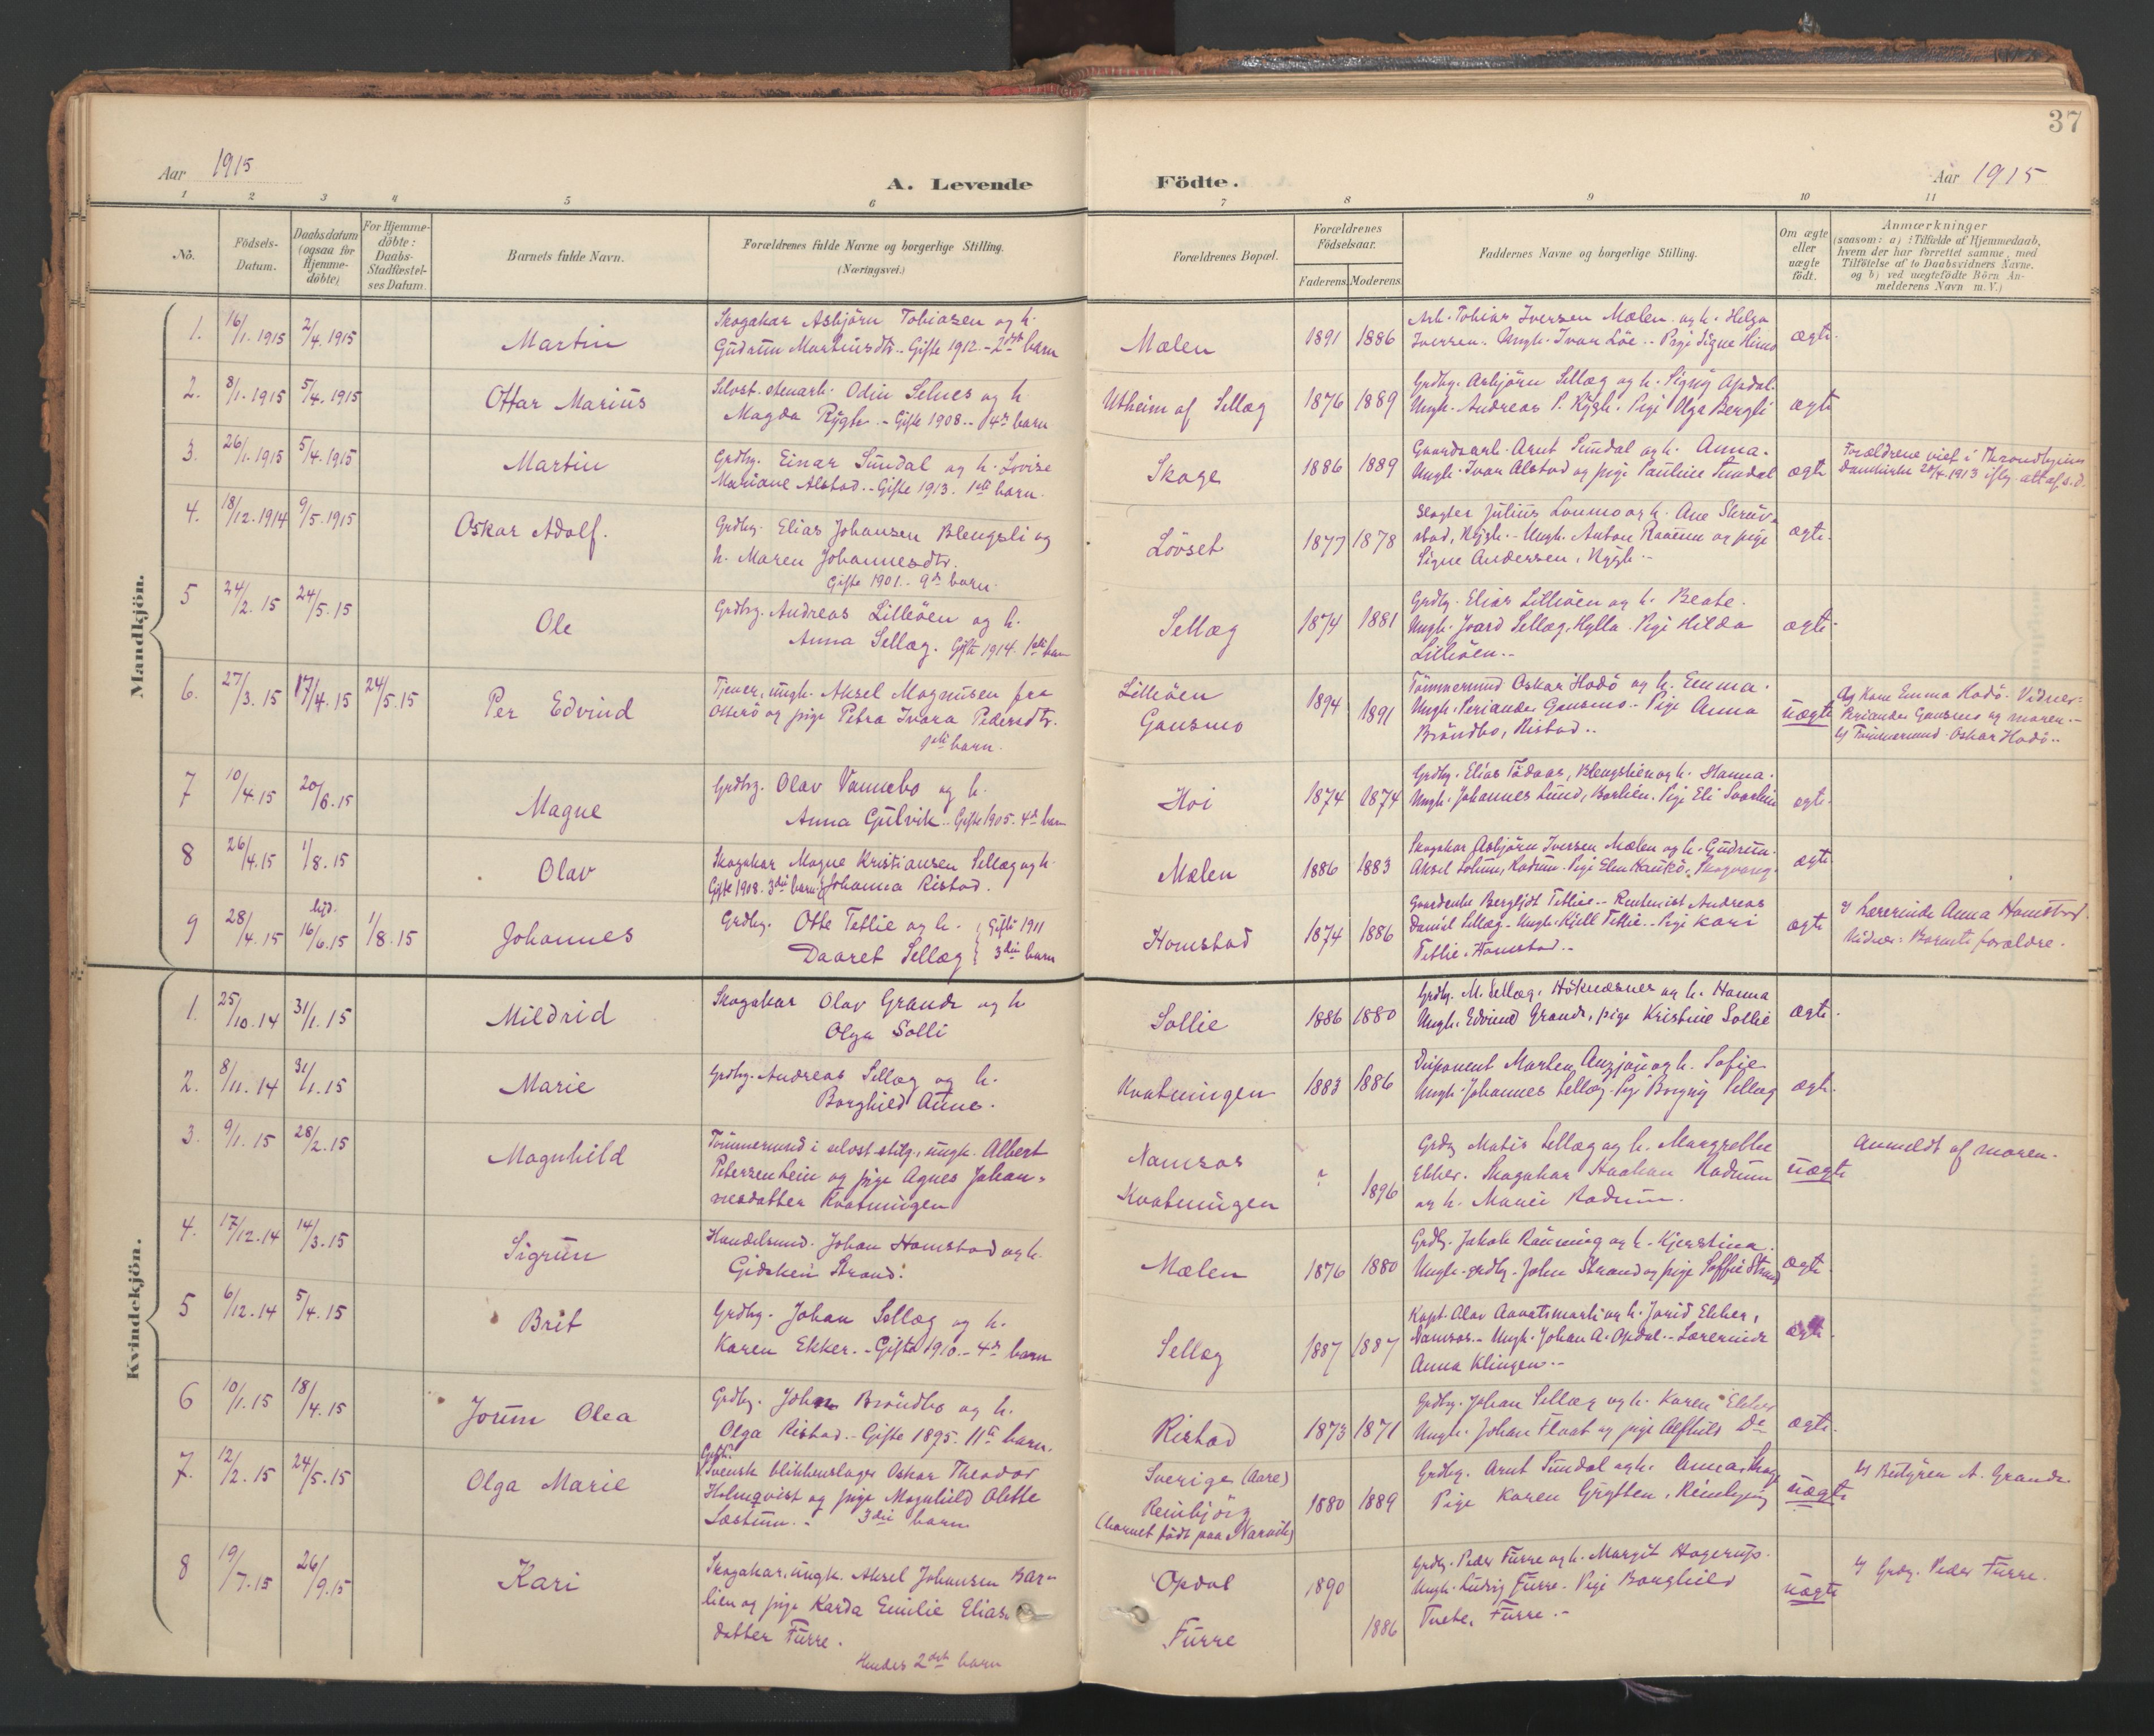 37
Aar 1915
A. Levende Födte.
Aar 1915
1 2 3 4 5 6 7 8 9 10 11
No.
Födsels-Datum.
Daabsdatum (ogsaa for Hjemme-döbte)
For Hjemme-döbte: Daabs-Stadfæstel-ses Datum.
Barnets fulde Navn.
Forældrenes fulde Navne og borgerlige Stilling.
(Næringsvei.)
Forældrenes Bopæl.
Forældrenes Födselsaar.
Faderens. Moderens.
Faddernes Navne og borgerlige Stilling.
Om ægte eller uægte födt.
Anmærkninger
(saasom: a) i Tilfælde af Hjemmedaab,
hvem der har forrettet samme, med
Tilföielse af to Daabsvidners Navne.
og b) ved uægtefödte Börn An-
melderens Navn m.V.)
Mandkjön.
1. 16/1.1915 2/4.1915 Martin
Skogakar Asbjörn Tobiasen og h.
Gudrun Martinsdtr. - Gifte 1912. - 2det barn
Mælen 1891 1886
Arb. Tobias Iversen Mælen og h. Helga
Iversen. Ungk. Ivar Löe. - Pige Signe
ægte.
2. 8/1.1915 5/4.1915 Ottar Marius
Selvst. stenarb. Odin Selnes og h.
Magda Rygh. - Gifte 1908. - 4de barn
Utheim af Sellæg 1876 1889
Grdbr. Asbjörn Sellæg og h. Signy Opdal.
Ungk. Andreas P. Rygh. Pige Olga Bergli
ægte
3. 26/1.1915 5/4.1915 Martin
Grdbr. Einar Sundal og h. Lovise
Mariane Alstad. - Gifte 1913. 1ste barn.
Skage 1886 1889
Gaardsarb. Arnt Sundal og h. Anna.
Ungk. Ivar Alstad og pige Pauline Sundal
ægte
Forældrene viet i Throndhjems
Domkirke 28/4.1913 iflg. att. af s.d.
4. 18/12.1914 9/5.1915 Oskar Adolf.
Grdbr. Elias Johansen Blengsli og
h. Maren Johannesdtr.
Gifte 1901. 9de barn.
Lövset 1877 1878
Slagter Julius Lonmo og h. Ane Skrüv-
stad, Rygh. - Ungk. Anton Raaum og pige
Signe Andersen, Rygh. -
ægte.
5 24/2.15 24/5.15 Ole
Grdbr. Andreas Lilleöen og h.
Anna Sellæg. Gifte 1914. 1ste barn
Sellæg 1874 1881
Grdbr. Elias Lilleöen og h. Beate.
Ungk. Ivard Sellæg, Hylla. Pige Hilda
Lilleöen. -
ægte.
6. 27/3.15 17/4.15 24/5.15 Per Edvind
Tjener, ungk. Aksel Magnusen fra
Otterö og pige Petra Ivara Pedersdtr.
1ste barn.
Lilleöen
Gansmo 1894 1891
Tömmermd Oskar Hadö og h. Emma.
Ungk. Periander Gansmo. - Pige Anna
Bröndbo, Ristad. -
uægte
Af Kone Emma Hadö. Vidner:
Periander Gansmo og moren. -
b) Tömmermd. Oskar Hadö. -
7 10/4.15 20/6.15 Magne
Grdbr. Olav Vannebo og h.
Anna Gulvik. - Gifte 1905. 4de barn
Hoi 1874 1874
Grdbr. Elias Tödaas, Blengslien og h. Hanna.
Ungk. Johannes Lund, Barlien. Pige Eli
ægte.
8 26/4.15 1/8.15 Olav
Skogakar Magne Kristiansen Sellæg og h.
Gifte 1908. 3die barn } Johanna Ristad.
Mælen 1886 1883
Skogakar Asbjörn Iversen Mælen og h. Gudrun.
Aksel Solum, Radum. Pige Elen Haukö,
ægte.
9 28/4.15 hjd. 16/6.15 1/8.15 Johannes
Grdbr. Otte Tetlie og h. } Gifte 1911
Daaret Sellæg } 3die barn
Homstad 1874 1886
Gaardenke Bergljot Tetlie. - Rentenist Andreas
Daniel Sellæg. - Ungk. Kjell Tetlie. - Pige Kari
Tetlie, Homstad. -
ægte
a) Lærerinde Anna Homstad.
Vidner: Barnets forældre.
Kvindekjön.
1. 25/10.14 31/1.15 Mildrid
Skogakar Olav Grande og h.
Olga Solli
Sollie 1886 1880
Grdbr. M. Sellæg, Höknesnes og h. Hanna
Ungk. Edvind Grande, pige Kristine Sollie
ægte.
2. 8/11.14 31/1.15 Marie
Grdbr. Andreas Sellæg og h.
Borghild Aune.
Kvatningen 1883 1886
Disponent Morten og h. Sofie
Ungk. Johannes Sellæg. Pige Borgny Sellæg
ægte.
3. 9/1.15 28/2.15 Magnhild
Tömmermd i selvst. stilg., ungk. Albert
Petersen Hein og pige Agnes Johan-
nesdatter Kvatningen
Namsos
Kvatningen ? 1896
Grdbr Matis Sellæg og h. Margrethe
Ekker. Skogakar Haakon Radum
og h. Marie Radum.
uægte
Anmeldt af moren.
4. 17/12.14 14/3.15 Sigrun
Handelsmd. Johan Homstad og h.
Gidsken Strand.
Mælen 1876 1880
Grdbr. Jakob Rönning og h. Kjerstina.
Ungk. grdbr. John Strand og pige Soffie Strand
ægte.
5 6/12.14 5/4.15 Brit
Grdbr. Johan Sellæg og h.
Karen Ekker. - Gifte 1910. - 4de barn
Sellæg 1887 1887
Kapt. Olav Aavatsmark og h. Jorid Ekker,
Namsos. - Ungk. Johan A. Opdal. - Lærerinde
Anna Klingen. -
ægte.
6 10/1.15 18/4.15 Jorun Olea
Grdbr. Johan Bröndbo og h.
Olga Ristad. - Gifte 1895. 11te barn.
Ristad 1873 1871
Grdbr. Johan Sellæg og h. Karen Ekker
Ungk. Johan Flaat og pige Alfhild Do
ægte.
7. 12/2.15 24/5.15 Olga Marie
Gift.
Svensk blikkenslager Oskar Theodor
Holmqvist og pige Magnhild Olette
Sæstrum. - 3die barn
Sverige (Aare)
Reinbjör
(barnet födt paa Narvik) 1880 1889
Grdbr. Arnt Sundal og h. Anna, Skage
Pige Karen Grytten, Reinbjör
uægte
b) Bestyren A. Grande.
8 19/7.15 26/9.15 Kari
Skogakar, ungk. Aksel Johansen Bar-
lien og pige Karda Emilie Elias-
datter Furre.
Hendes 2det barn
Opdal
Furre 1890 1886
Grdbr. Peder Furre og h. Margit Hagerup.
Ungk. Ludvig Furre. Pige Borghild
Tvete, Furre. -
uægte
b) Grdbr. Peder Furre.